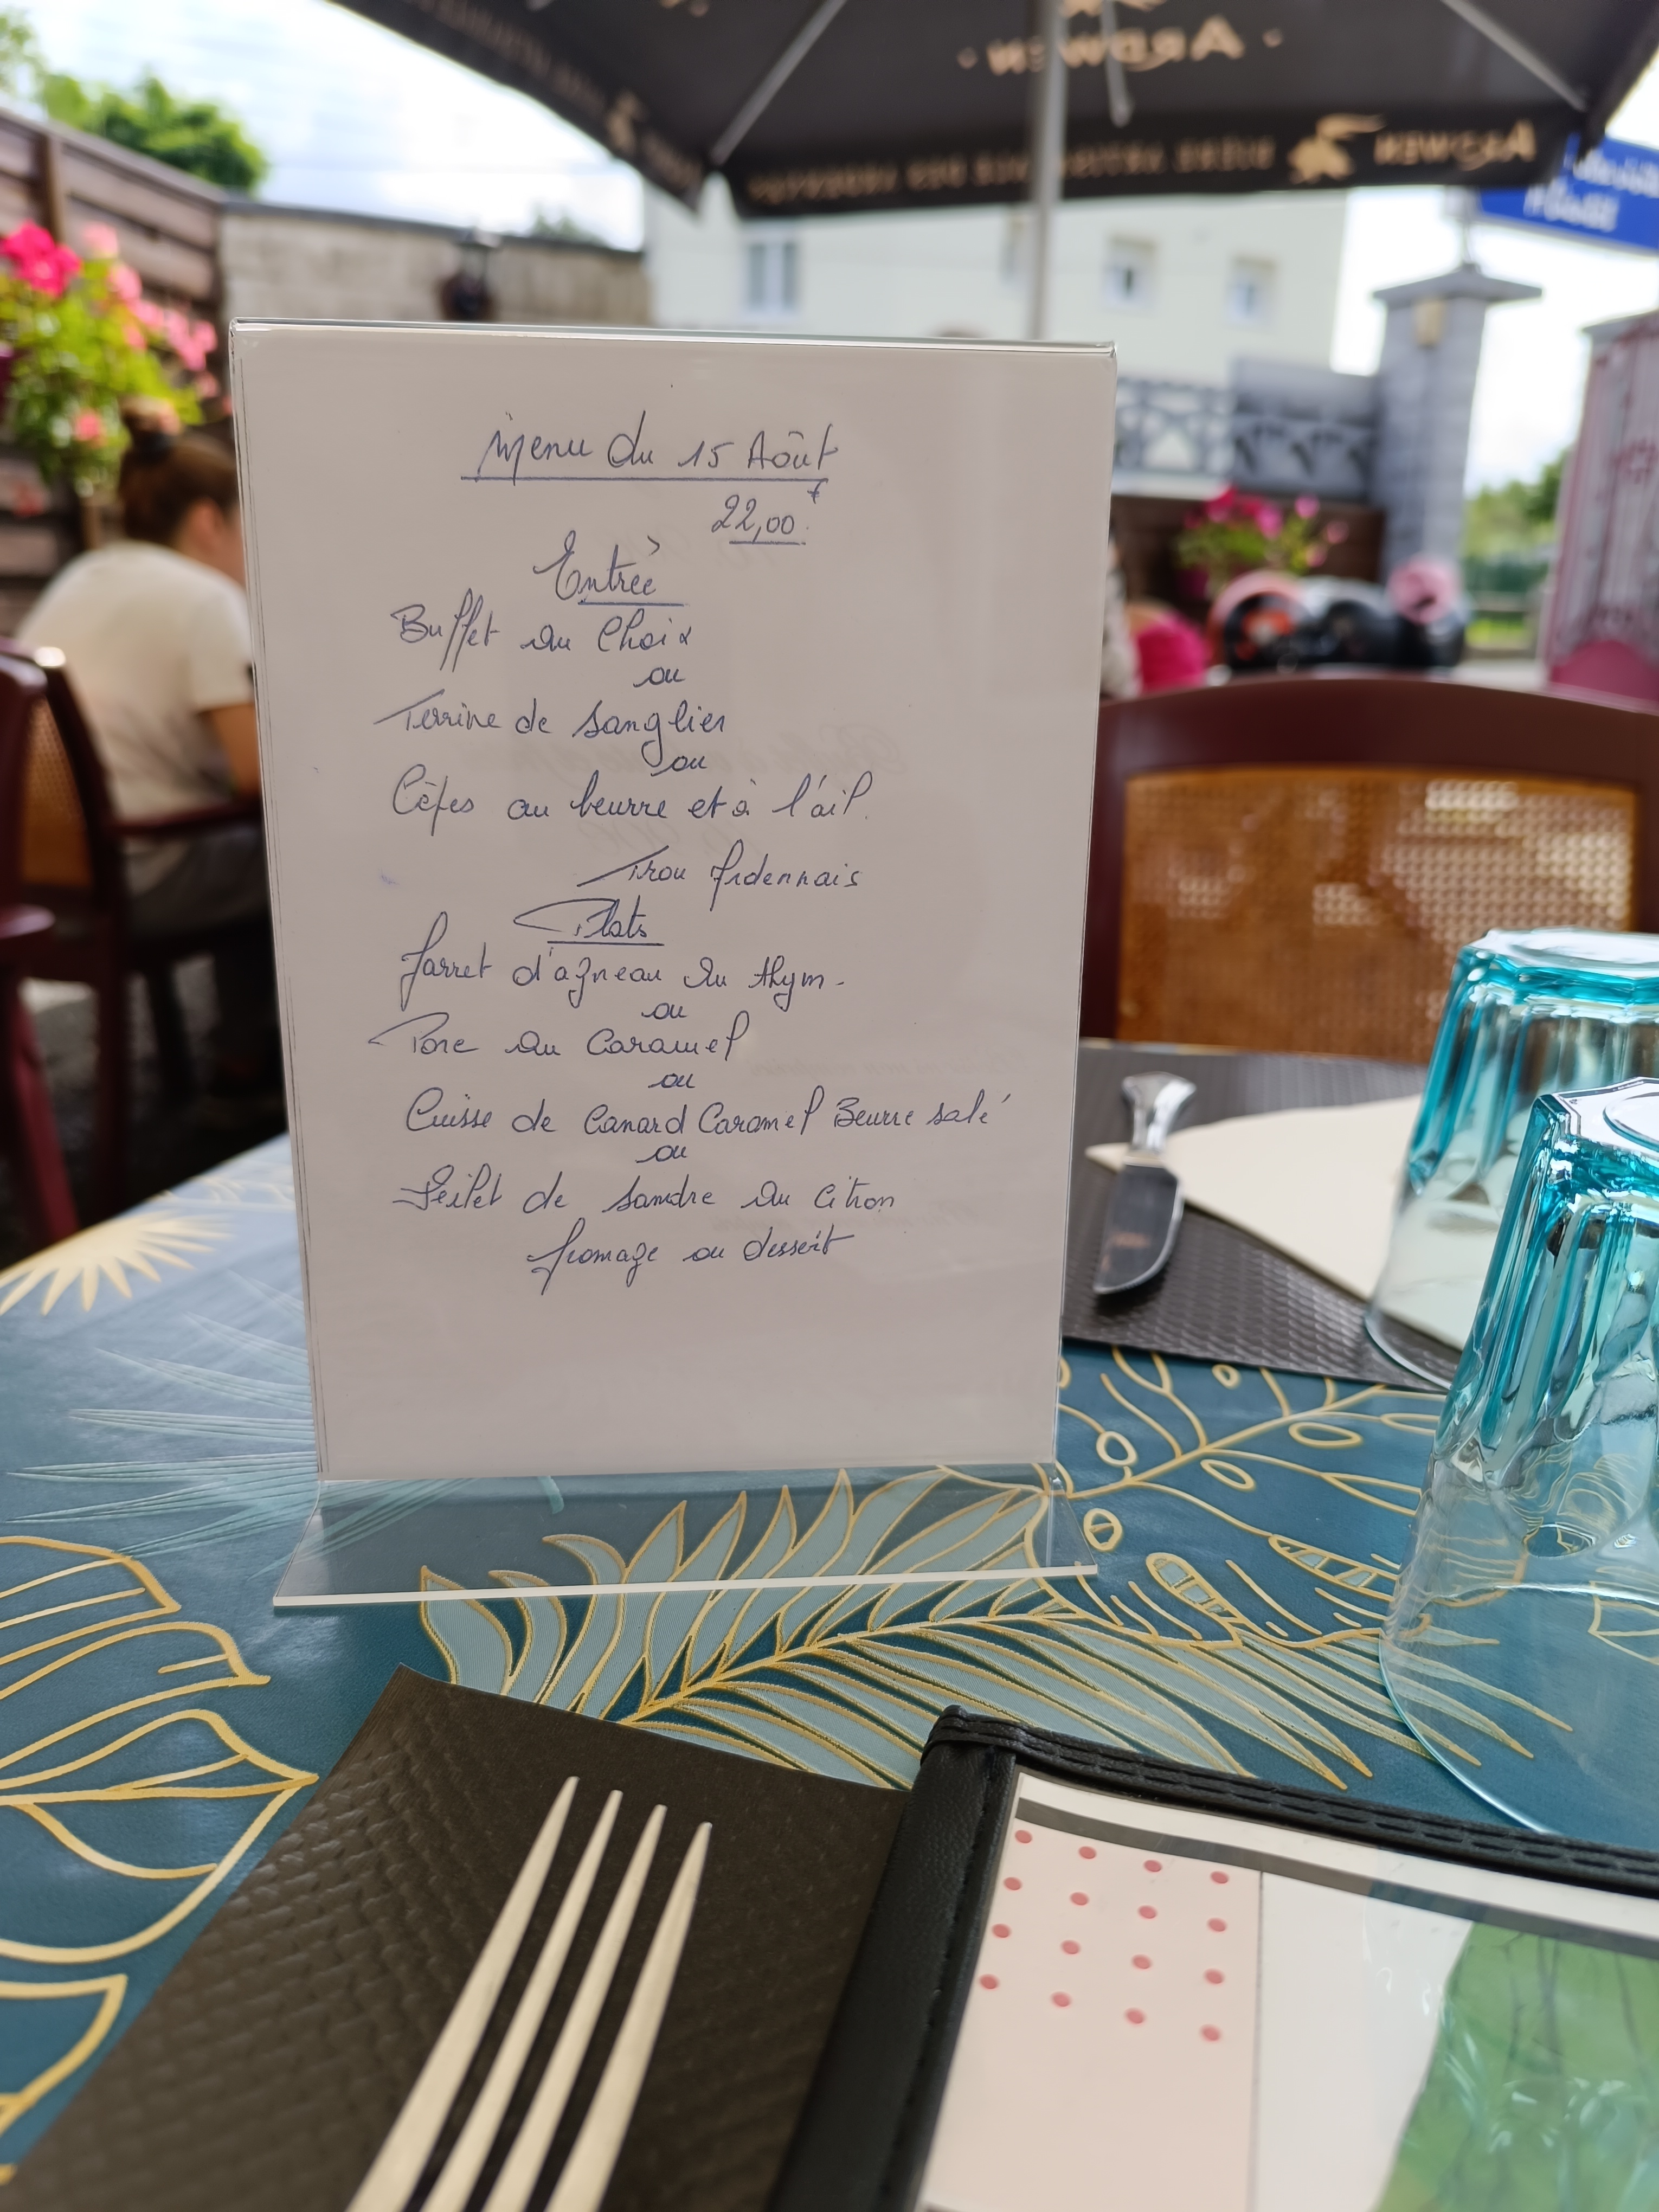 ARDWEN
ARDWEN
Menu du 15 Aôut
22,00 €
Entrée
Buffet au Choix
ou
Terrine de sanglier
ou
Cèpes au beurre et à l'ail.
Trou Ardennais
Plats
Jarret d'agneau au thym.
ou
Porc au Caramel
ou
Cuisse de Canard Caramel Beurre salé
ou
Feilet de sandre au Citron
fromage ou dessert